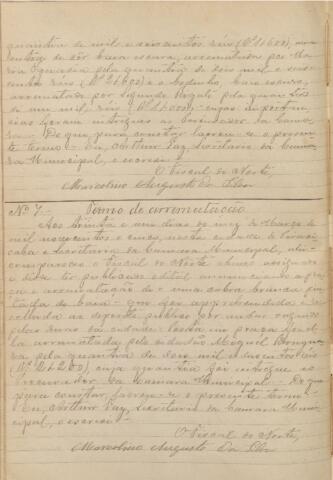 quantia de mil e seiscentos réis (Rs 1$600), um
de côr baia escura, arrematado por
pela quantia de dois mil e seis-
centos réis (Rs 2$600) e o
arrematado por Segundo pela quantia
de um mil réis (Rs 1$000) cujas importan-
cias foram entregues ao Procurador da Cama-
ra. Do que para constar lavrou-se o presen-
te termo. Eu, Arthur Vaz, Secretario da Cama-
ra Municipal, o escrevi.
O Fiscal do Norte,
Marcolino Augusto da Silva
Nº 7. Termo de arrematação
Aos trinta e um dias do mez de Março de
mil novecentos e cinco, nesta cidade de Piraci-
caba e Secretaria da Camara Municipal, ahi
compareceu o Fiscal do Norte abaixo assignado
e disse ter publicado edital annunciando
a arrematação de uma cabra branca pin-
tada de baio que foi apprehendida e re-
colhida ao deposito publico por andar vagando
pelas ruas da cidade; posta em praça foi el-
la arrematada pelo cidadão Miguel
pela quantia de dois mil e duzentos réis
(Rs 2$200), cuja quantia foi entregue ao
Procurador da Camara Municipal. Do que
para constar, lavrou-se o presente termo.
Eu, Arthur Vaz, Secretario da Camara Muni-
cipal, o escrevi.
O Fiscal do Norte,
Marcolino Augusto da Silva